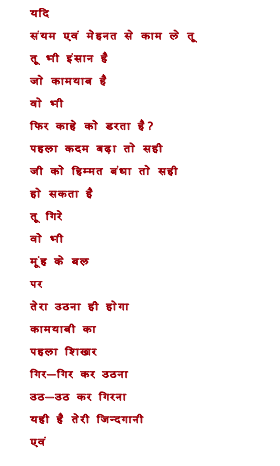 यदि
संयम एवं मेहनत से काम ले तू
तू भी इंसान है
जो कामयाब है
वो भी
फिर काहे को डरता है?
पहला कदम बढ़ा तो सही
जी को हिम्मत बंधा तो सही
हो सकता है
तू गिरे
वो भी
मूंह के बल
पर
तेरा उठना ही होगा
कामयाबी का
पहला शिखार
गिर—गिर कर उठना
उठ—उठ कर गिरना
यही है तेरी जिन्दगानी
एवं